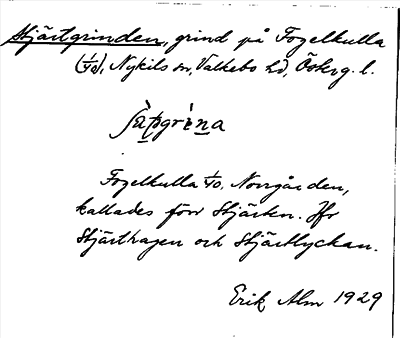 Stjärtgrinden, grind på Fogelkulla
(1/40), Nykils sn, Valkebo hd, Österg. l.
Fogelkulla 1/40, Norrgården,
kallades förr Stjärten. Jfr
Stjärthagen och Stjärtlyckan.
Erik Alm 1929